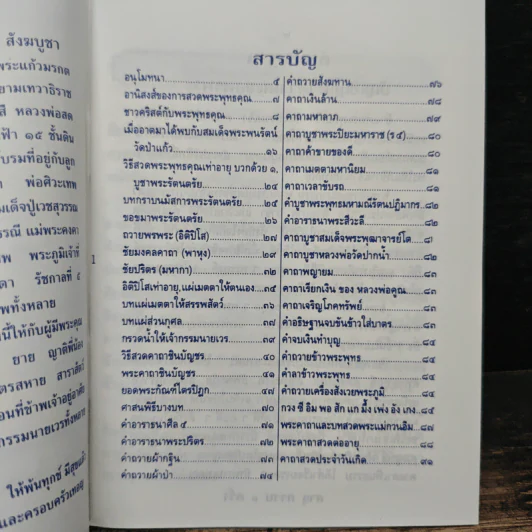 สังฆบูชา
พระแก้วมรกต
ยามเทวาธิราช
สี หลวงพ่อสด
ฟ้า ๑๕ ชั้นดิน
บรมที่อยู่กับลูก
า พ่อศิวะเทพ
มเด็จปู่เวชสุวรรณ
รณี แม่พระคงคา
ทพ พระภูมิเจ้าที่
ตา รัชกาลที่ ๕
พทั้งหลาย
นี้ให้กับผู้มีพระคุณ
ยาย ญาติพี่น้อง
ตรสหาย สาราสัตว์
อนที่ข้าพเจ้าอยู่อาศัย
กรรมนายเวรทั้งหลาย
ให้พ้นทุกข์ มีสุข
และครอบครัวเทอญ
1
สารบัญ
อนุโมทนา ๕
อานิสงส์ของการสวดพระพุทธคุณ ๗
ชาวคริสต์กับพระพุทธคุณ ๘
เมื่ออาตมาได้พบกับสมเด็จพระพนรัตน์
วัดป่าแก้ว ๑๖
วิธีสวดพระพุทธคุณเท่าอายุ บวกด้วย ๑,
บูชาพระรัตนตรัย ๒๔
บทกราบนมัสการพระรัตนตรัย ๒๕
ขอขมาพระรัตนตรัย ๒๖
ถวายพรพระ (อิติปิโส) ๒๗
ชัยมงคลคาถา (พาหุง) ๒๙
ชัยปริตร (มหากา) ๓๒
อิติปิโสเท่าอายุ,แผ่เมตตาให้ตนเอง ๓๕
บทแผ่เมตตาให้สรรพสัตว์ ๓๖
บทแผ่ส่วนกุศล ๓๗
กรวดน้ำให้เจ้ากรรมนายเวร ๓๙
วิธีสวดคาถาชินบัญชร ๔๐
พระคาถาชินบัญชร ๔๑
ยอดพระกัณฑ์ไตรปิฎก ๔๗
ศาสนพิธีบางบท ๗๐
คำอาราธนาศีล ๕ ๗๑
คำอาราธนาพระปริตร ๗๒
คำถวายผ้ากฐิน ๗๓
คำถวายผ้าป่า ๗๔
คำถวายสังฆทาน ๗๖
คาถาเงินล้าน ๗๘
คาถามหาลาภ ๗๙
คาถาบูชาพระปิยะมหาราช (ร ๕) ๘๐
คาถาค้าขายของดี ๘๐
คาถาเมตตามหานิยม ๘๑
คาถาเวลาขับรถ ๘๑
คำบูชาพระพุทธมหามณีรัตนปฏิมากร ๘๒
คำอาราธนาพระสีวะลี ๘๒
คาถาบูชาสมเด็จพระพุฒาจารย์โต ๘๒
คาถาบูชาหลวงพ่อวัดปากน้ำ ๘๒
คาถาพญายม ๘๓
คาถาเรียกเงิน ของ หลวงพ่อคูณ ๘๓
คาถาเจริญโภคทรัพย์ ๘๓
คำอธิษฐานจบขันข้าวใส่บาตร ๘๓
คำจบเงินทำบุญ ๘๔
คำถวายข้าวพระพุทธ ๘๔
คำลาข้าวพระพุทธ ๘๔
คำถวายเครื่องสังเวยพระภูมิ ๘๔
กวง ซี อิม พอ สัก แก มึ้ง เพ่ง อัง เกง ๘๕
พระคาถาและบทสวดพระแม่กวนอิม ๘๗
พระคาถาสวดต่ออายุ ๘๘
คาถาสวดประจำวันเกิด ๙๑